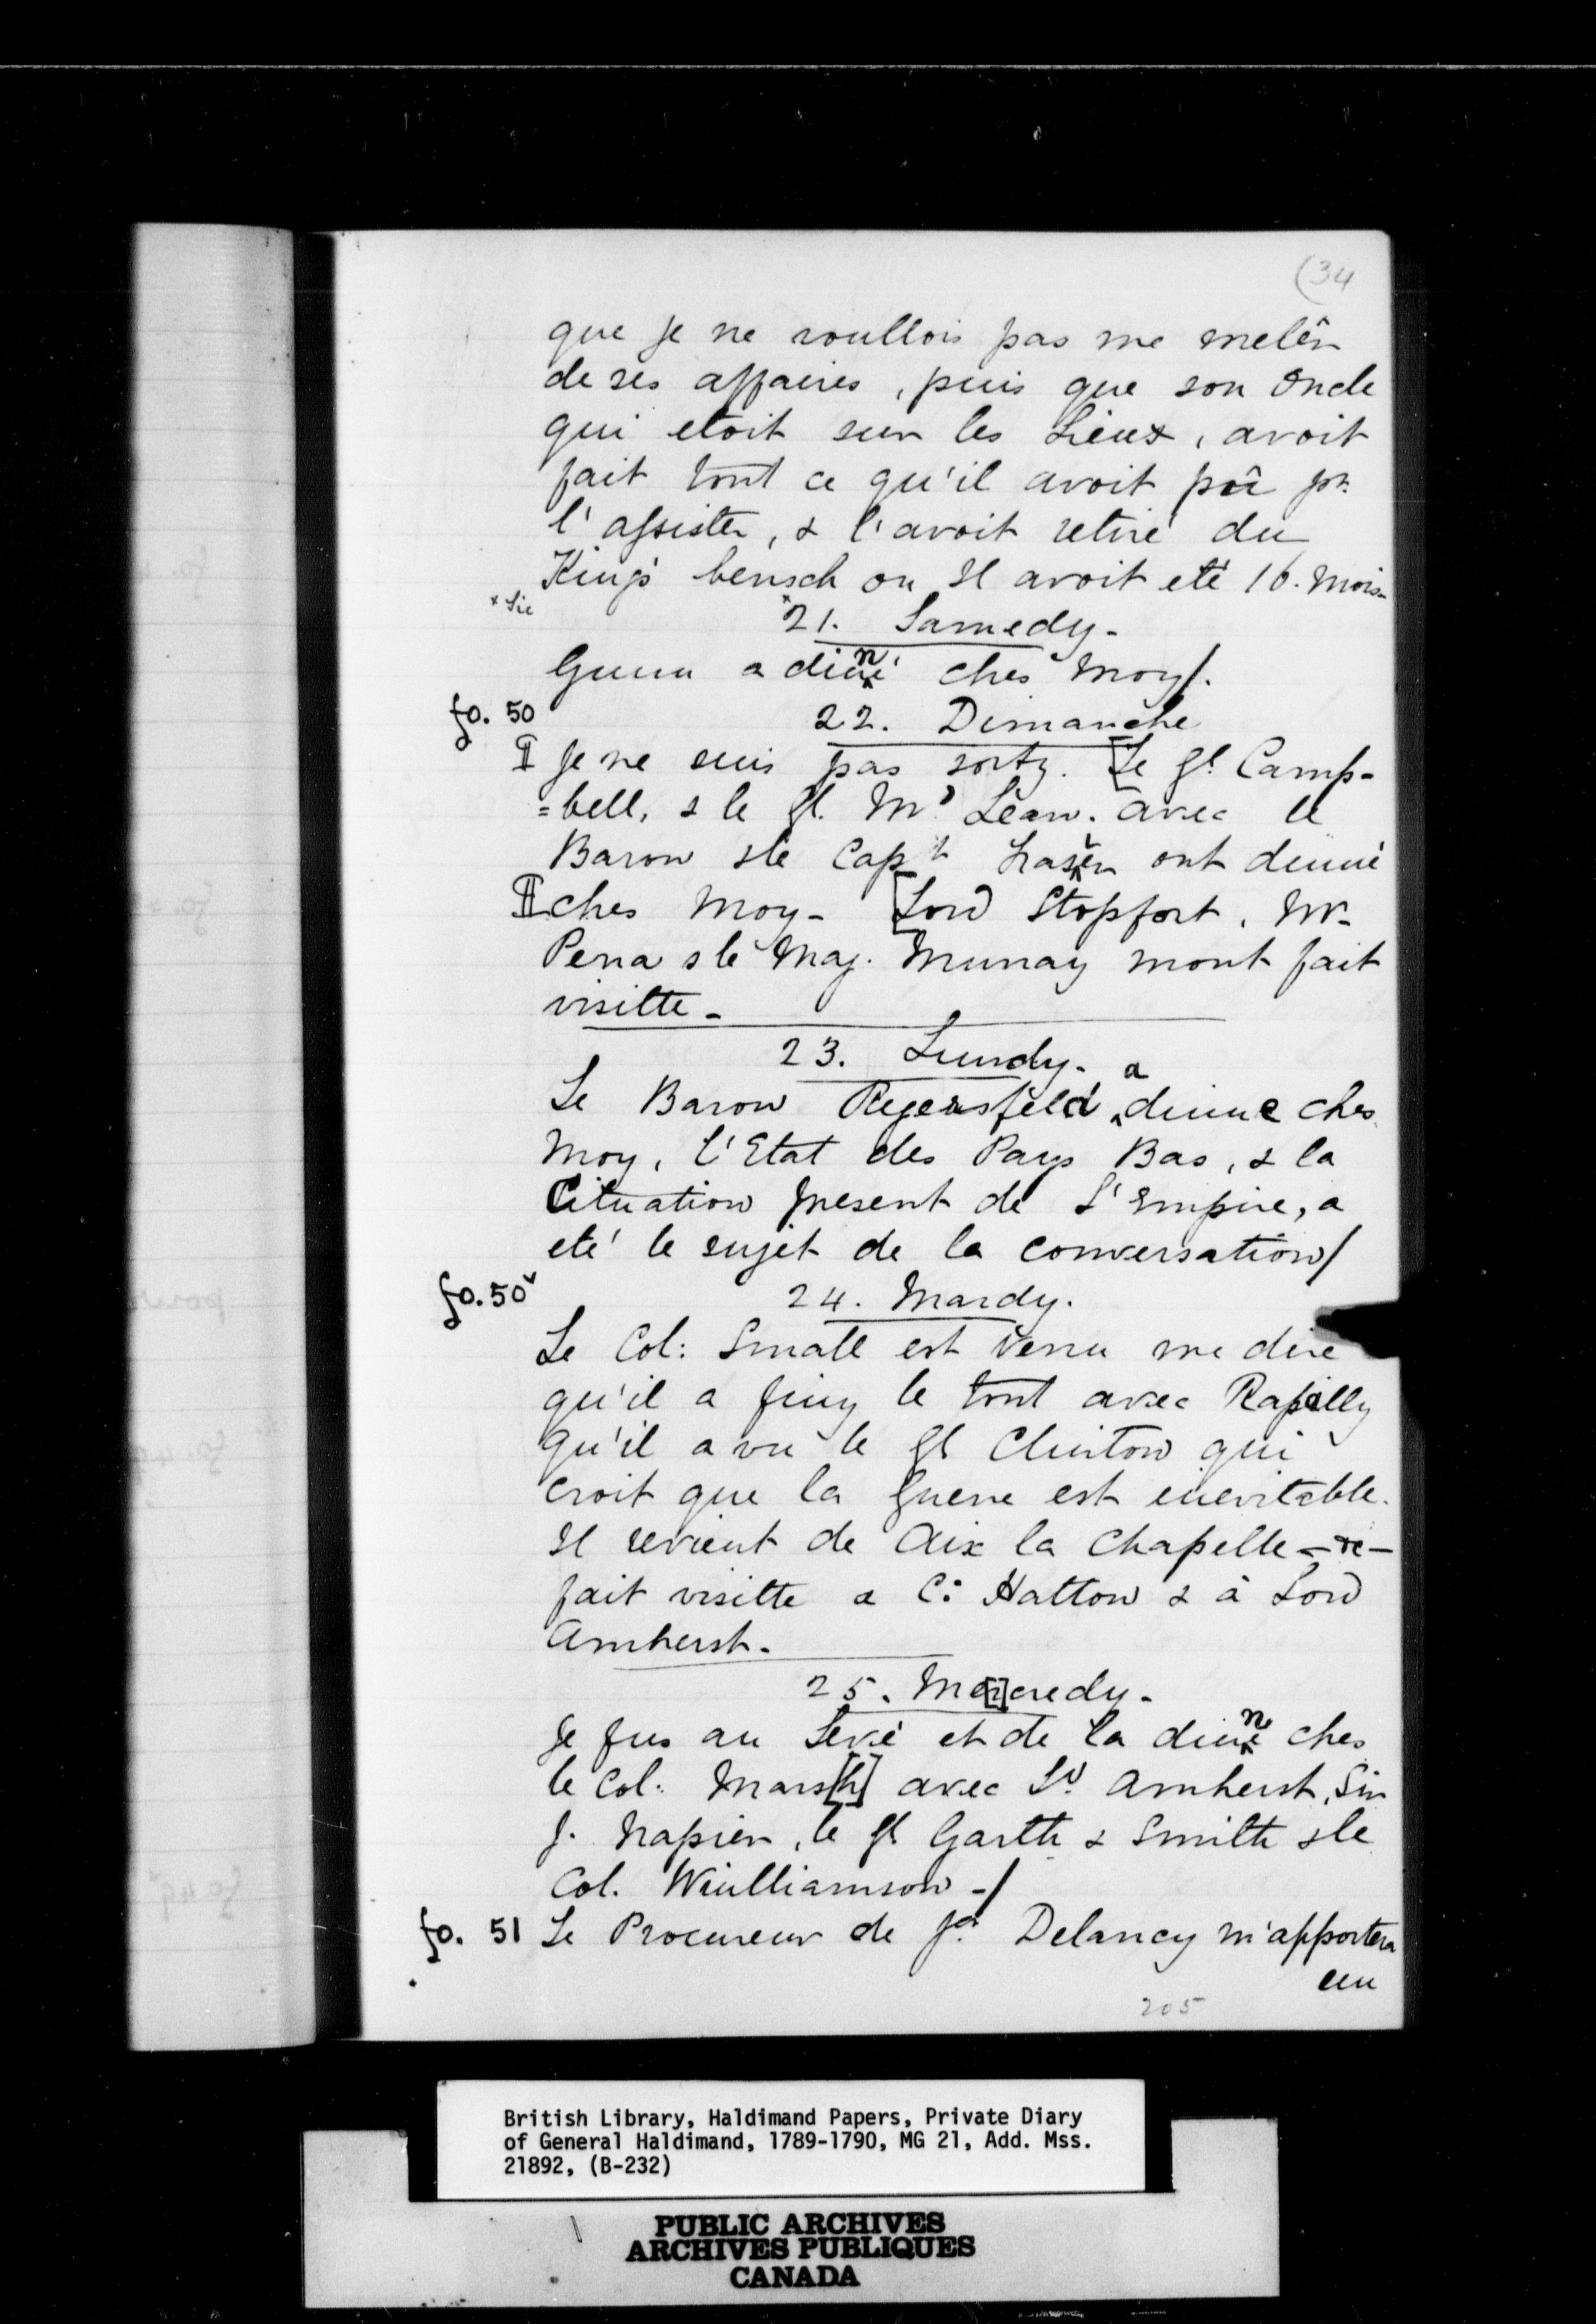 (34
que je ne voullois pas me melêr
de ses affaires, puis que son Oncle
qui etoit sur les Lieux, avoit
fait tout ce qu'il avoit pû pr.
l'assister, & l'avoit retiré du
King's bensch ou Il avoit eté 16. Mois-
* Sic
*21. Samedy-
Gunn a dinné ches Moy/.
fo. 50
22. Dimanche
Je ne suis pas sorty. [Le Gl. Camp-
=bell, & le Gl. Mc Lean. avec le
Baron & le Capt ont dinné
ches Moy- [Lord Stopfort, Mr-
Pena & le Maj. Murray mont fait
visitte-
23. Lundy-
Le Baron Regersfeld a dinne ches
Moy, L'Etat des Pays Bas, & la
Cituation present de L'Empire, a
eté le sujet de la conversation/
fo. 50v
24. Mardy.
Le Col: Small est venu me dire
qu'il a finy le tout avec Rapilly
qu'il a vu le Gl Clinton qui
croit que la Guerre est inevitable.
Il revient de Aix la Chapelle - re-
fait visitte a C: Hatton & à Lord
Amherst-
25. Me[r]credy-
Je fus au Levé et de la dinné ches
le Col. Mars[h] avec Ld. Amherst, Sir
J. Napier, le Gl Garth & Smith & le
Col. Wiulliamson -/
fo. 51 Le Procureur de Delancy m'apportera
un
205
British Library, Haldimand Papers, Private Diary
of General Haldimand, 1789-1790, MG 21, Add. Mss.
21892, (B-232)
PUBLIC ARCHIVES
ARCHIVES PUBLIQUES
CANADA